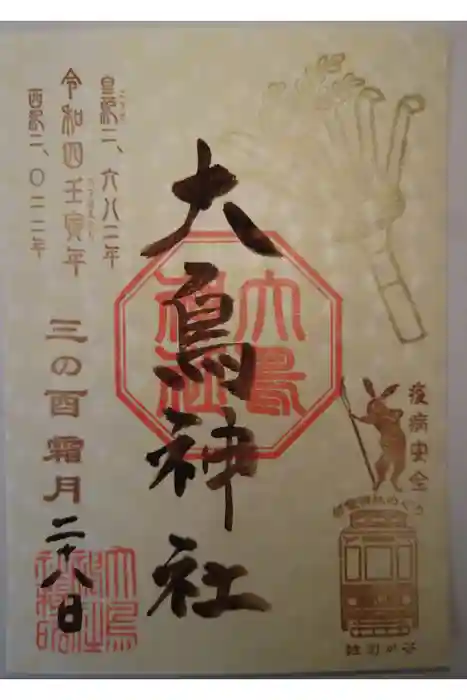 疫病安全
雑司が谷
大鳥神社
大鳥神社
皇紀二、六八二年
令和四壬寅年
西暦二、〇二二年
三の酉 霜月二十八日